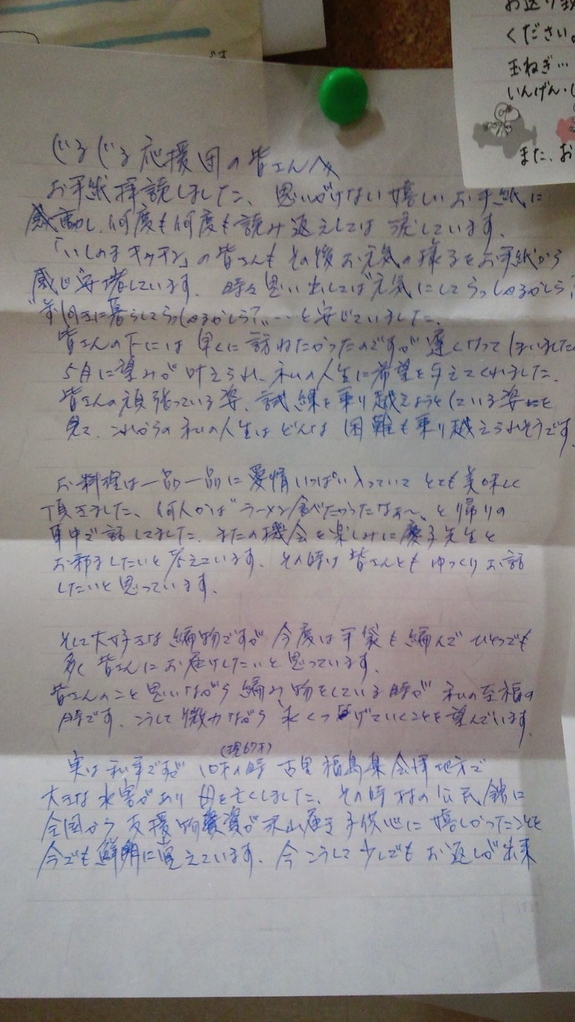 お送り
ください。
玉ねぎ…
いんげん・じ
また、お
じるじる応援団の皆さんへ
お手紙拝読しました、思いがけない嬉しいお手紙に
感動し、何度も何度も読み返えしては 涙しています。
「いしのまキッチン」の皆さんも その後お元気の様子をお手紙から
感じ安堵しています。時々思い出しては"元気にしてらっしゃるかしら?
前向きに暮らしてらっしゃるかしら?…と案じていました。
皆さんの下には 早くに訪ねたかったのですが 遅くなって しまいました
5月に望みが叶えられ、私の人生に希望を与えてくれました。
皆さんの頑張っている姿、試練を乗り越えようとしている姿を
見て、これからの私の人生はどんな 困難も乗り越えられそうです。
お料理は一品一品に愛情いっぱい入っていて とても美味しく
頂きました、何人かは"ラーメン食べたかったなぁ〜、と帰りの
車中で話してました、またの機会を楽しみに慶子先生と
お邪ましたいと考えています、その時は皆さんとも ゆっくりお話
したいと思っています。
そして大好きな編物ですが 今度は手袋も編んで ひとつでも
多く皆さんにお届けしたいと思っています。
皆さんのこと思いながら編み物をしている時が 私の至福の
時です、こうして微力ながら 永くつなげていくことを望んでいます。
(現67才)
実は私事ですが 10才の時 古里福島県会津地方で
大きな水害があり 母を亡くしました、その時村の公民館に
全国から支援物資が沢山届き子供心に嬉しかったことを
今でも鮮明に覚えています、今こうして少しでもお返しが出来